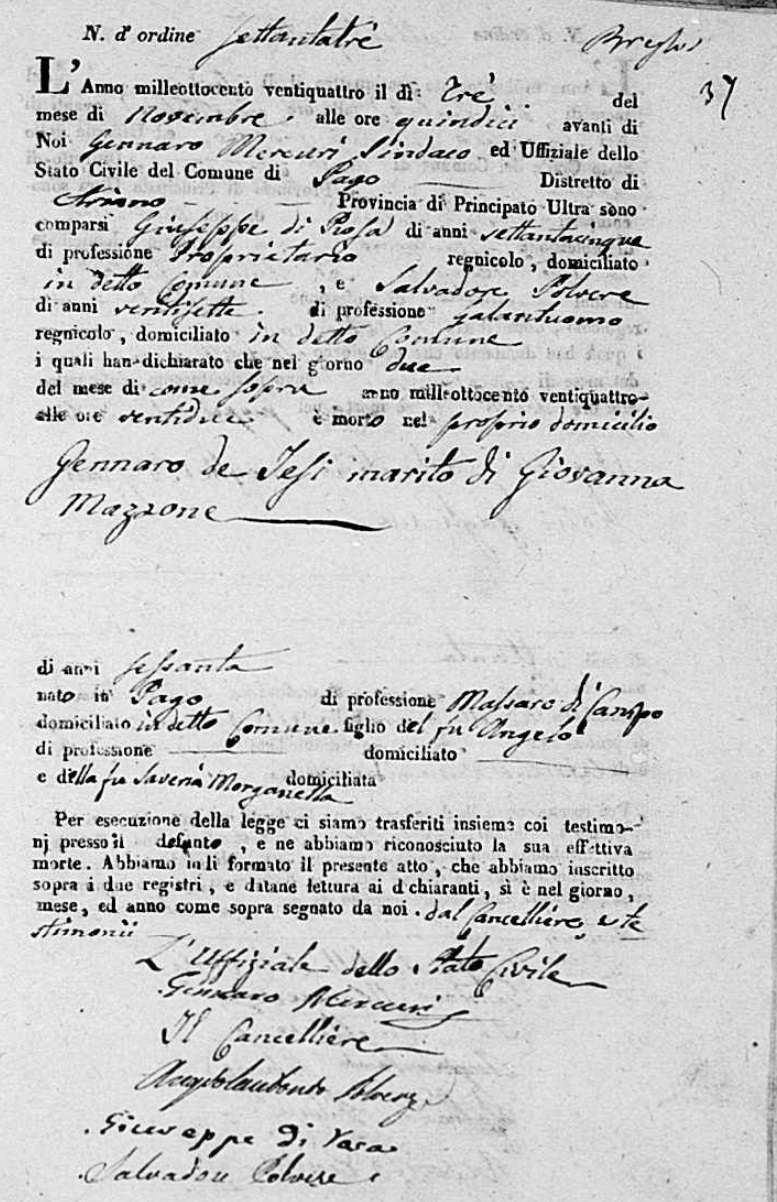 N. d' ordine settantatrè
37
L'Anno milleottocento ventiquattro il dì: Trè del
mese di Novembre alle ore quindici avanti di
Noi Gennaro Mercuri Sindaco ed Uffiziale dello
Stato Civile del Comune di Pago Distretto di
Ariano Provincia di Principato Ultra sono
comparsi Giuseppe di Rosa di anni settantacinque
di professione Proprietario regnicolo, domiciliato
in detto Comune, e Salvadore Polvere
di anni ventisette di professione galantuomo
regnicolo, domiciliato in detto Comune
i quali han dichiarato che nel giorno due
del mese di come sopra anno milleottocento ventiquattro
alle ore ventidue è morto nel proprio domicilio
Gennaro de Jesi marito di Giovanna
Mazzone
di anni sessanta
nato in Pago di professione Massaro di Campo
domiciliato in detto Comune figlio del fu Angelo
di professione domiciliato
e della fu Saveria Morganella domiciliata
Per esecuzione della legge ci siamo trasferiti insieme coi testimo-
nj presso il defunto, e ne abbiamo riconosciuto la sua effettiva
morte. Abbiamo indi formato il presente atto, che abbiamo inscritto
sopra i due registri, e datane lettura ai dichiaranti, sì è nel giorno,
mese, ed anno come sopra segnato da noi. dal Cancelliere, e te
stimonii
L'Uffiziale dello Stato Civile
Gennaro Mercuri
Il Cancelliere
Polvere
Giuseppe di
Salvadore Polvere